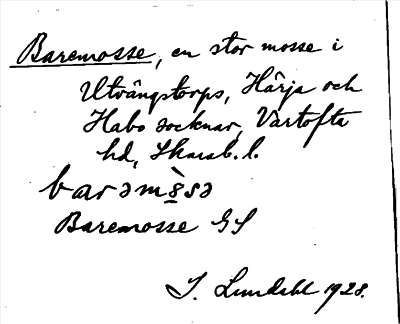 Baremosse, en stor mosse i
Utvängstorps, Härja och
Habo socknar, Vartofta
hd, Skarab. l.
barəms̤̀sə
Baremosse GS
J. Lundahl 1928.